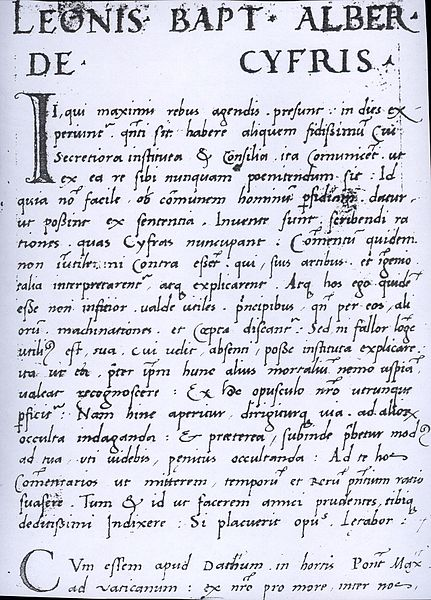 LEONIS · BAPT · ALBER ·
DE · CYFRIS ·
II, qui maximis rebus agendis presunt: in dies ex
periunt qñti sit habere aliquem fidissimũ Cui
Secretiora instituta & Consilia ita Comunicet ut
ex ea re sibi nunquam poenitendum sit: Id
quia nõ facile ob comunem hominũ pfidiam datur
ut possint ex sententia. Inventæ sunt scribendi ra
tiones quas Cyfras nuncupant: Comentũ quidem
non iutile, ni Contra essẽt qui, suis artibus et igenio
talia interpretarent, atq explicarent. Atq hos ego quidẽ
esse non inficior valde utiles principibus qñ per eos, ali
orũ machinationes et Cœpta discant: Sed ni fallor lõge
utiliꝰ est, sua, cui velit, absenti, posse instituta explicare
ita ut ea pter ipm hunc alius mortaliũ nemo uspiã
valeat recognoscere: Ex hõc opusculo nrõ utrunque
pficit: Nam hinc aperitur dirigiturq via ad alioꝝ
occulta indaganda: & præterea, subinde phetur modꝰ
ad tua uti videbis, penitus occultanda: Ad te hos
Comentarios ut mitterem, temporũ et Rerũ pñtium ratio
suasere. Tum & id ut facerem amici prudentes, tibiq
deditissimi Indixere: Si placuerit opuˢ Letabor:
CVm essem apud Dathium in hortis Pont Max
ad Vaticanum: ex nrõ pro more inter nos